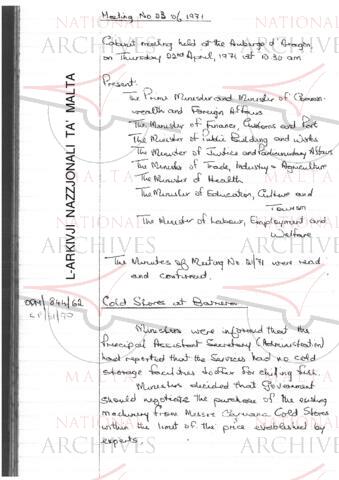 Meeting No 23 of 1971
Cabinet meeting held at the Auberge d'Aragon,
on Thursday 22nd April, 1971 at 9.30 am
Present:
The Prime Minister and Minister of Common-
wealth and Foreign Affairs
The Minister of Finance, Customs and Port
The Minister of Public Building and Works
The Minister of Justice and Parliamentary Affairs
The Minister of Trade, Industry & Agriculture
The Minister of Health
The Minister of Education, Culture and
Tourism
The Minister of Labour, Employment and
Welfare
The Minutes of Meeting No /71 were read
and confirmed.
OPM/844/62
Cold Stores at
Ministers were informed that the
Principal Assistant Secretary (Administration)
had reported that the Services had no cold
storage facilities to offer for chilling fish.
Ministers decided that Government
should negotiate the purchase of the existing
machinery from Messrs Cold Stores
within the limit of the price established by
experts.
L-ARKIVJI NAZZJONALI TA' MALTA
NATIONAL
ARCHIVES
MALTA